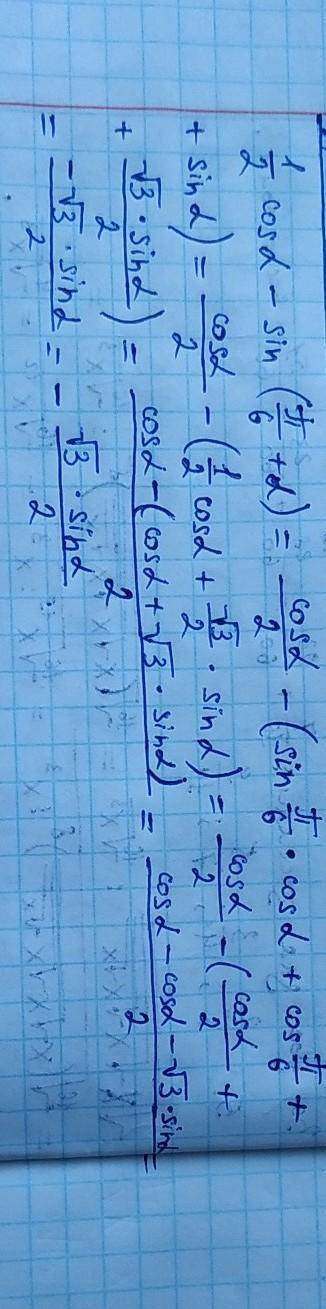 1/2 cosα − sin (π/6 + α) = cosα/2 − (sin π/6 · cosα + cos π/6 +
+ sinα) = cosα/2 − (1/2 cosα + √3/2 · sinα) = cosα/2 − (cosα/2 +
+ √3 · sinα/2) = cosα − (cosα + √3 · sinα)/2 = cosα − cosα − √3 · sinα/2 =
= −√3 · sinα/2 = − √3 · sinα/2